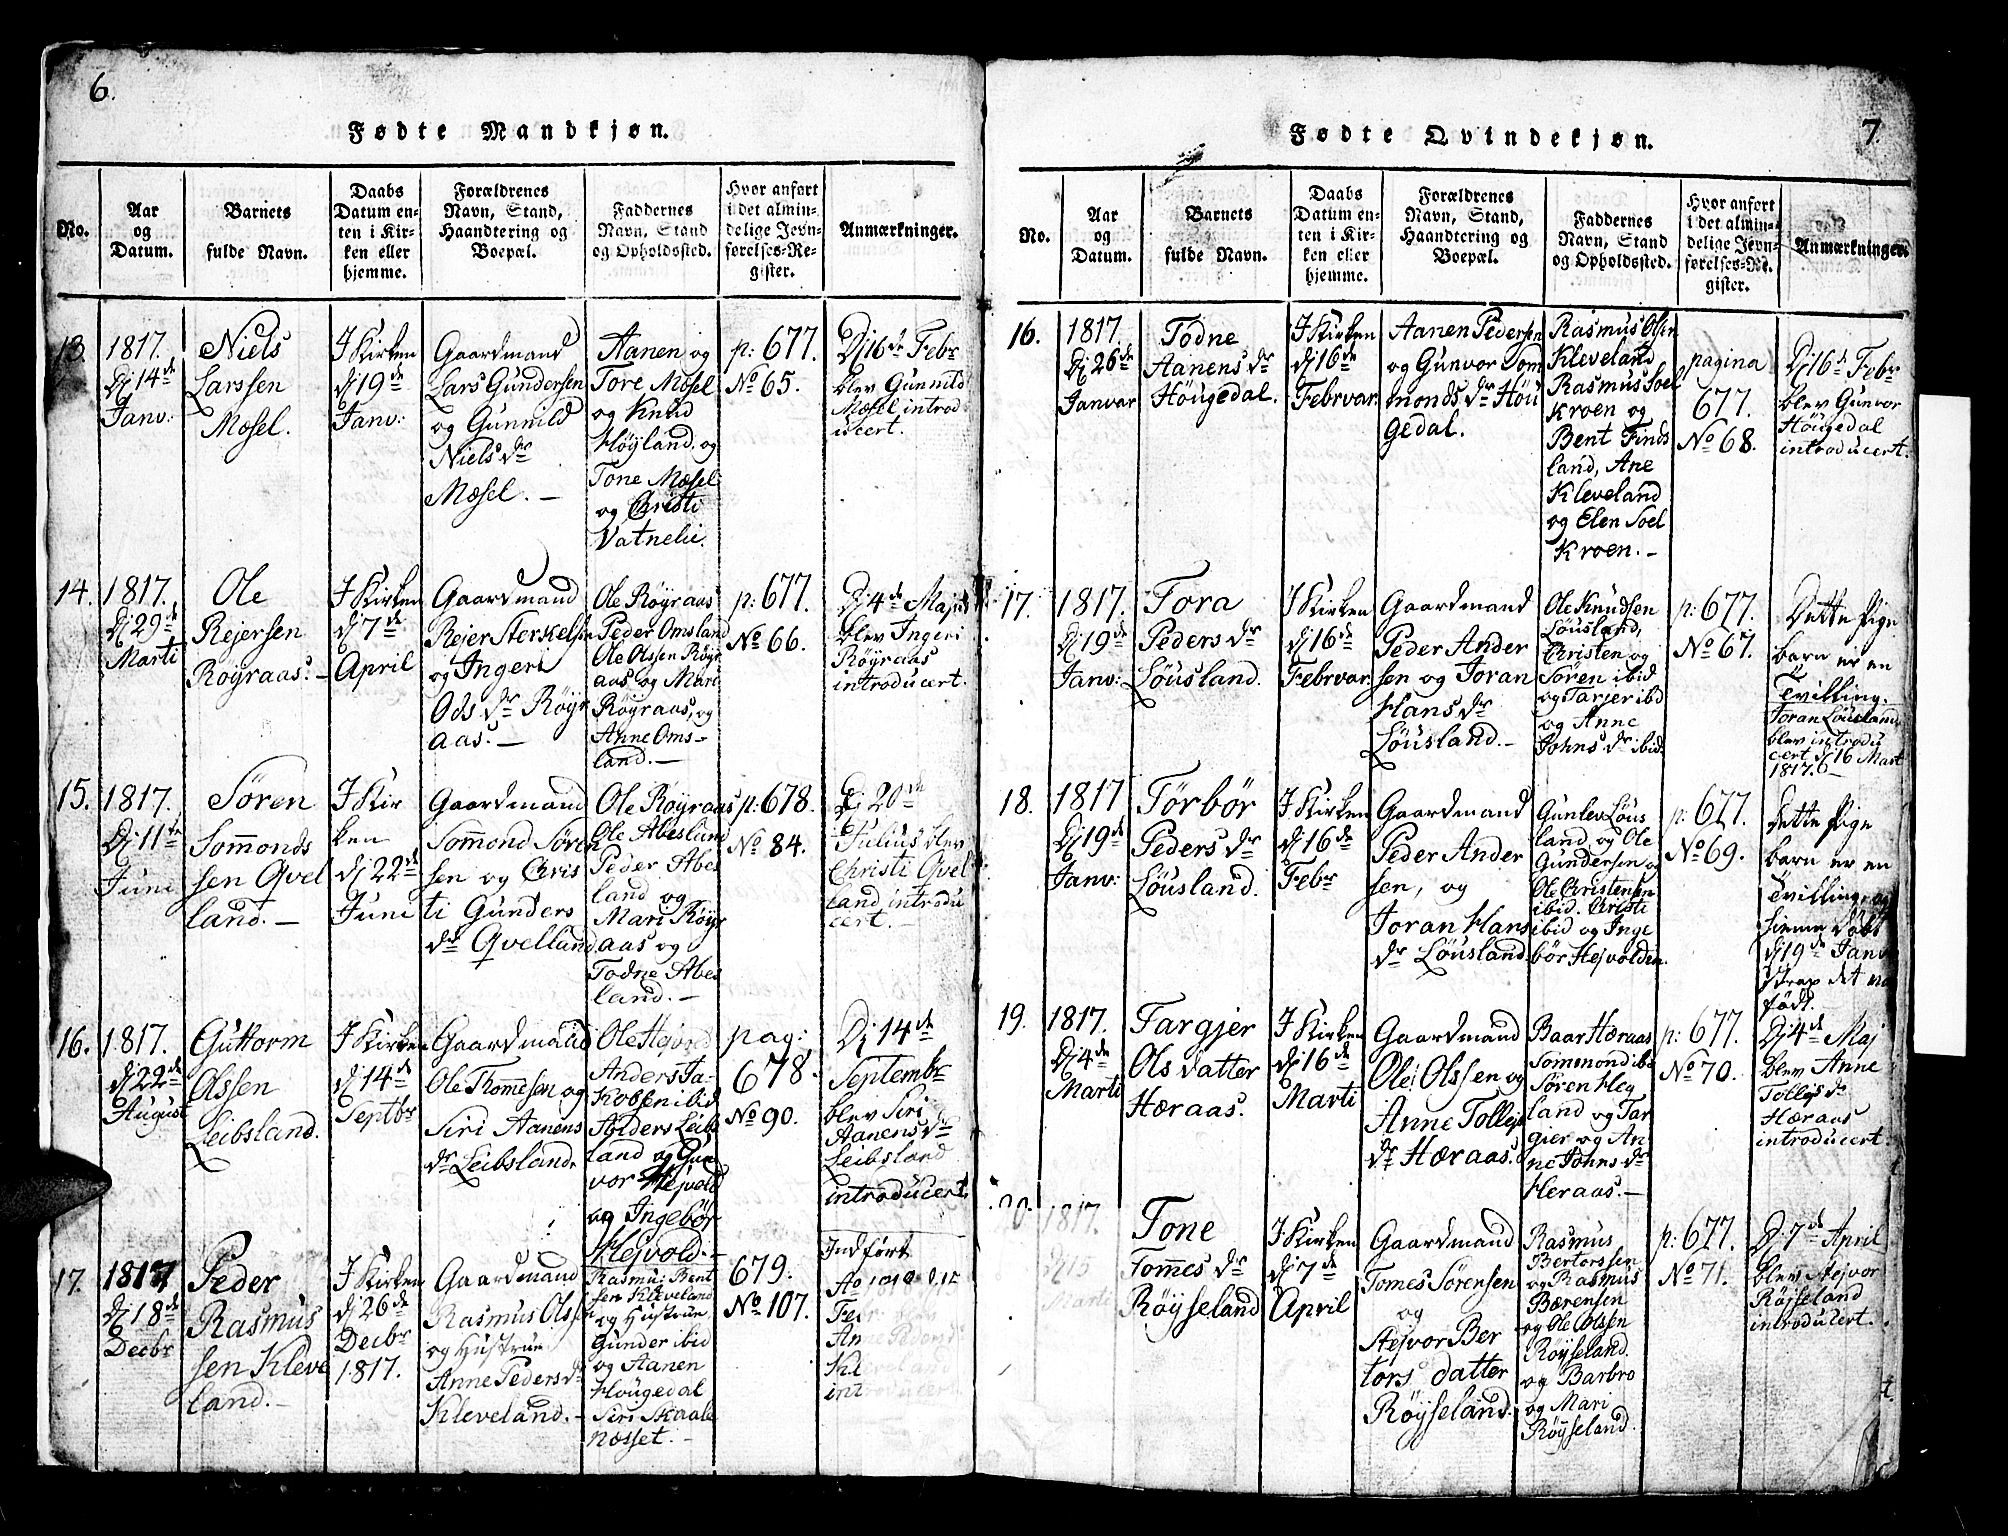 6.
Fødte Mandkjøn.
No.
Aar
og
Datum.
Barnets
fulde Navn.
Daabs
Datum en-
ten i Kir-
ken eller
hjemme.
Forældrenes
Navn, Stand,
Haandtering og
Boepæl.
Faddernes
Navn, Stand
og Opholdssted.
Hvor anført
i det almin-
delige Jevn-
førelses-Re-
gister.
Anmærkninger.
13.
1817.
Dj 14de
Janv:
Niels
Larssen
Mosel.
I Kirken
dj 19de
Janv:
Gaardmand
Lars Gundersen
og Gunnild
Niels dr
Mæsel. —
Aanen og
Tore Mosel
og Knud
Høyland og
Tone Mæsel
og Christi
Vatnelie.
p: 677.
No 65.
Dj 16de Febr
blev Gunnild
Mæsel introd
ucert.
14.
1817.
Dj 29de
Marti
Ole
Rejersen
Røÿraas. —
I Kirken
dj 7de
April
Gaardmand
Rejer Sterkelsen
og Ingeri
Ods dr Røÿr
aas. —
Ole Røÿraas
Peder Omsland
Ole Olssen Røÿr
aas og Mari
Røÿraas, og
Anne Oms-
land. —
p: 677.
No 66.
Dj 4de Maji
blev Ingeri
Røÿraas
introducert.
15.
1817.
Dj 11te
Juni
Søren
Sommonds
sen Qvel
land. —
I Kir
ken
dj 22de
Juni
Gaardmand
Sommond Søren
sen og Chris
ti Gunders
dr Qvelland
Ole Røÿraas
Ole Abesland
Peder Abes
land og
Mari Røÿr
aas og
Todne Abes
land. —
p: 678.
No 84.
Dj 20de
Julius blev
Christi Qvel
land introdu
cert. —
16.
1817.
dj 22de
August
Guttorm
Olssen
Leibsland.
I Kirken
dj 14de
Septbr
Gaardmand
Ole Thommesen og
Siri Aanens
dr Leibsland.
Ole Hejvold
Anders Ja-
kobsen ibid
Anders Leibs
land og Gun
vor Hejvold
og Ingebør
Hejvold. —
pag:
678.
No 90.
Dj 14de
Septembr
blev Siri
Aanens dr
Leibsland
introducert
17.
1817
Dj 18de
Decbr
Peder
Rasmus
sen Kleve
land. —
I Kirken
dj 26de
Decbr
1817.
Gaardmand
Rasmus Olssen
og Hustrue
Anne Peders dr
Kleveland. —
Rasmus Bent
sen Kleveland
og Hustrue,
Gunder ibid
og Aanen
Hougedal
Siri Skaale
næsset. —
679.
No 107.
Indført
Ao 1818 d. 1te
7.
Fødte Qvindekjøn.
No.
Aar
og
Datum.
Barnets
fulde Navn.
Daabs
Datum en-
ten i Kir-
ken eller
hjemme.
Forældrenes
Navn, Stand,
Haandtering og
Boepæl.
Faddernes
Navn, Stand
og Opholdssted.
Hvor anført
i det almin-
delige Jevn-
førelses-Re-
gister.
Anmærkninger.
16.
1817.
Dj 26de
Janvar
Todne
Aanens dr
Höugedal.
I Kirken
dj 16de
Febrvar.
Aanen Pedersen
og Gunvor Som
monds dr Höu
gedal.
Rasmus Olsen
Kleveland
Rasmus Soel
Kroen og
Bent Finds
land, Ane
Kleveland
og Elen Soel
Kroen. —
pagina
677.
No 68.
Dj 16de Febr
blev Gunvor
Höugedal
introducert.
17.
1817.
Dj 19de
Janv:
Tora
Peders dr
Löusland.
I Kirken
dj 16de
Febrvar.
Gaardmand
Peder Ander
sen og Joran
Hans dr
Löusland. —
Ole Knudsen
Löusland,
Christen og
Søren ibid
og Tarjer ibd
og Anne
Johns dr ibid.
p: 677.
No 67.
Dette Pige
barn er en
Tvilling.
Joran Lousland
blev introdu
cert d 16 Mart
1817.
18.
1817
Dj 19de
Janv:
Törbör
Peders dr
Löusland.
I Kirken
dj 16de
Febr
Gaardmand
Peder Ander
sen, og
Joran Hans
dr Löusland.
Gunlev Löus
land og Ole
Gundersen og
Ole Christensen
ibid. Christi
ibid og Inge
bör Hejvolden.
p: 677.
No 69.
Dette Pige
barn er en
Tvilling, og
hjemme døbt
dj 19de Janv
strax det var
født.
19.
1817.
Dj 4de
Marti
Targjer
Ols datter
Hæraas.
I Kirken
dj 16de
Marti
Gaardmand
Ole Olssen og
Anne Tollefs
dr Hæraas.
Baar Hæraas
Sommond ibd
Søren Heg
land og Tar
gier og An
ne Johns dr
Heraas. —
p: 677.
No 70.
Dj 4de Maj
blev Anne
Tollefs dr
Hæraas
introducert
20.
1817.
Tone
Tommes dr
Røÿseland
I Kirken
dj 7de
April
Gaardmand
Tomes Sørensen
og
Hejvor Ber
tors datter
Røÿseland.
Rasmus
Bertorssen
og Rasmus
Bærensen
og Ole Olsen
Røÿseland.
og Barbro
og Mari
Røÿseland.
p: 677.
No 71.
D. 7de April
blev Hejvor
Røjseland
introducert.